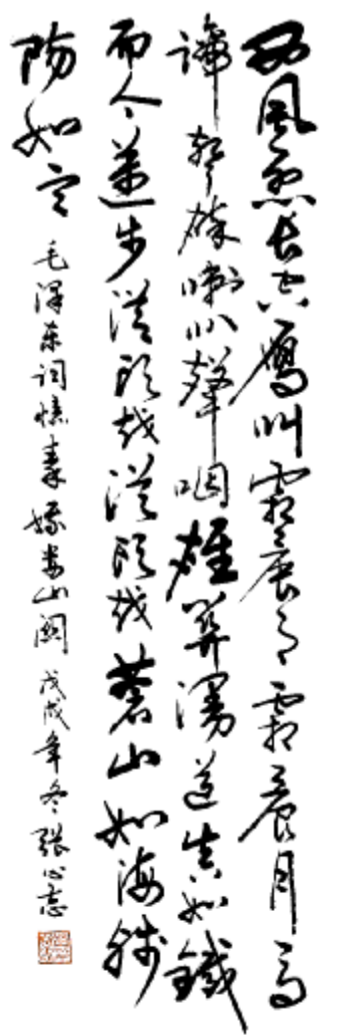 西風烈长空鴈叫霜晨月霜晨月马
蹄聲碎喇叭聲咽雄关漫道真如鐵
而今邁步從頭越從頭越蒼山如海残
陽如血
毛泽东词憶秦娥娄山関 戊戌年冬 張心志